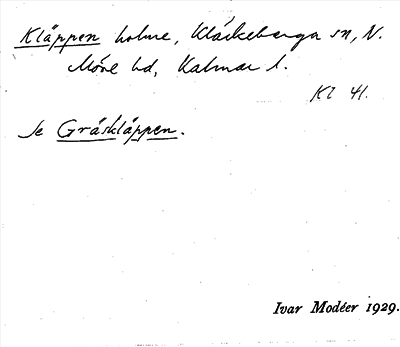 Kläppen holme, Kläckeberga sn, N.
Möre hd, Kalmar l.
Kl 41.
Se Gräskläppen.
Ivar Modéer 1929.